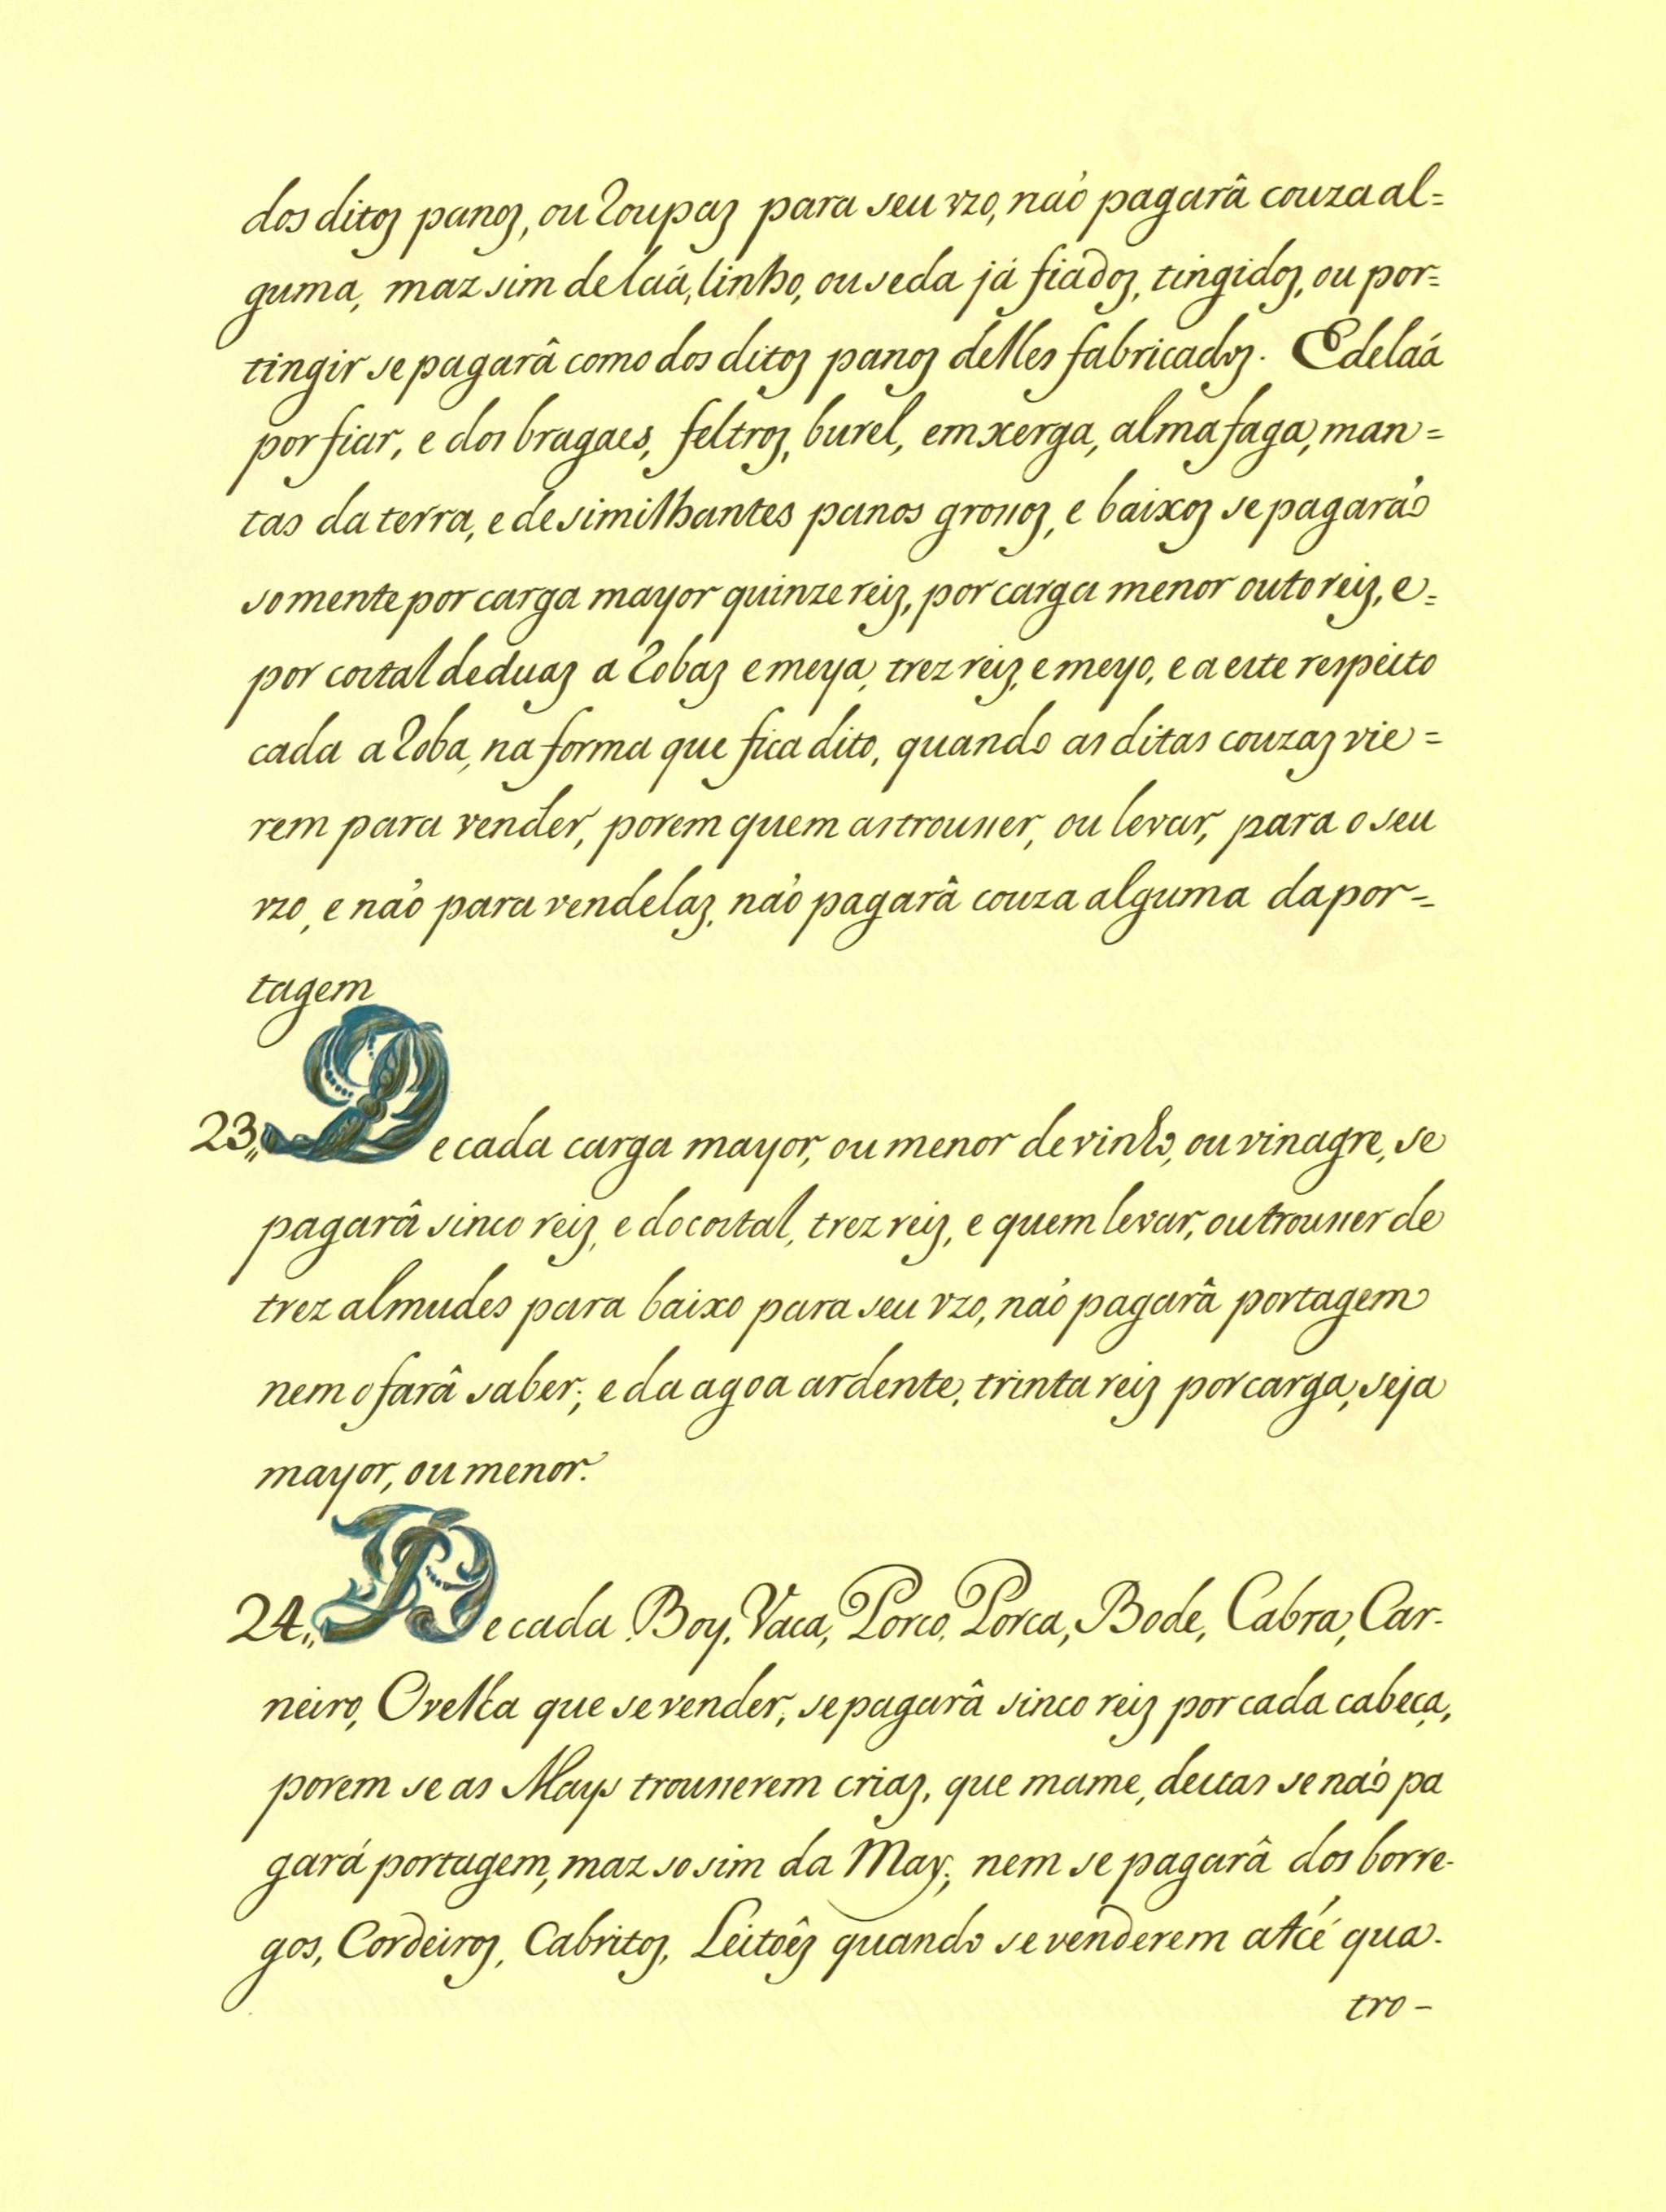 dos ditos panos, ou Roupas para seu vzo, naõ pagarâ couza al=
guma, maz sim de laá, linho, ou seda já fiados, tingidos, ou por=
tingir se pagarâ como dos ditos panos delles fabricados. E de laá
por fiar, e dos bragaes, feltros, burel, emxerga, almafaga, man=
tas da terra, e de similhantes panos grossos, e baixos se pagaraõ
somente por carga mayor quinze reis, por carga menor outo reis, e=
por costal de duas aRobas e meya, trez reis, e meyo, e a este respeito
cada aRoba, na forma que fica dito, quando as ditas couzas vie=
rem para vender, porem quem as trousser, ou levar, para o seu
vzo, e naõ para vendelas, naõ pagarâ couza alguma da por=
tagem
23,, De cada carga mayor, ou menor de vinho, ou vinagre, se
pagarâ sinco reis, e do costal, trez reis, e quem levar, ou trousser de
trez almudes para baixo para seu vzo, naõ pagarâ portagem
nem o farâ saber; e da agoa ardente, trinta reis por carga, seja
mayor, ou menor.
24,, De cada Boy, Vaca, Porco, Porca, Bode, Cabra, Car-
neiro, Ovelha que se vender, se pagarâ sinco reis por cada cabeça,
porem se as Mays trousserem crias, que mame, destas se naõ pa
gará portagem, maz so sim da May; nem se pagarâ dos borre-
gos, Cordeiros, Cabritos, Leitoês quando se venderem athé qua-
tro -